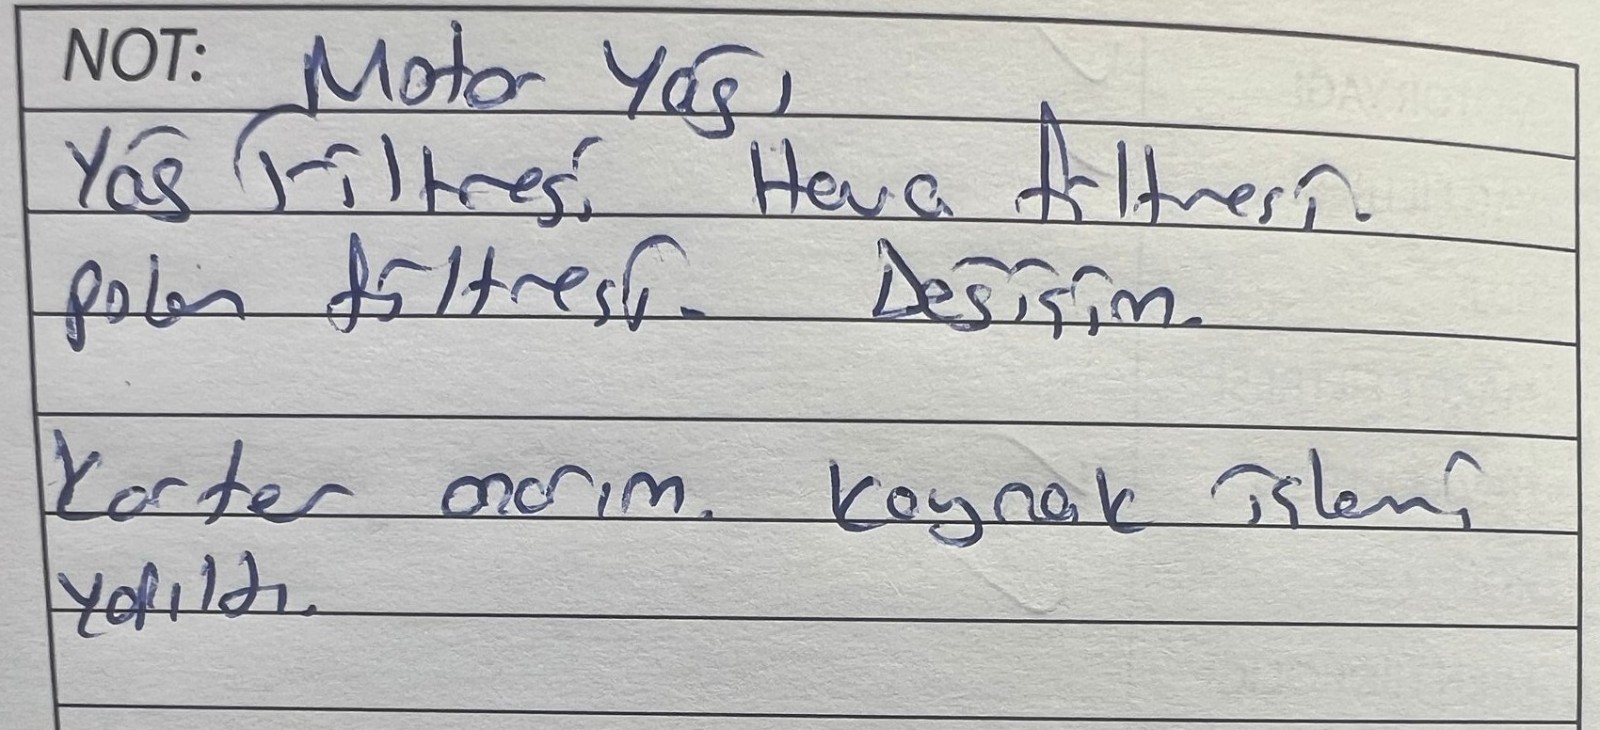 NOT: Motor Yağı
Yağ Filtresi Hava filtresi
polen filtresi. Değişim.
Karter onarım. Kaynak işlemi
yapıldı.